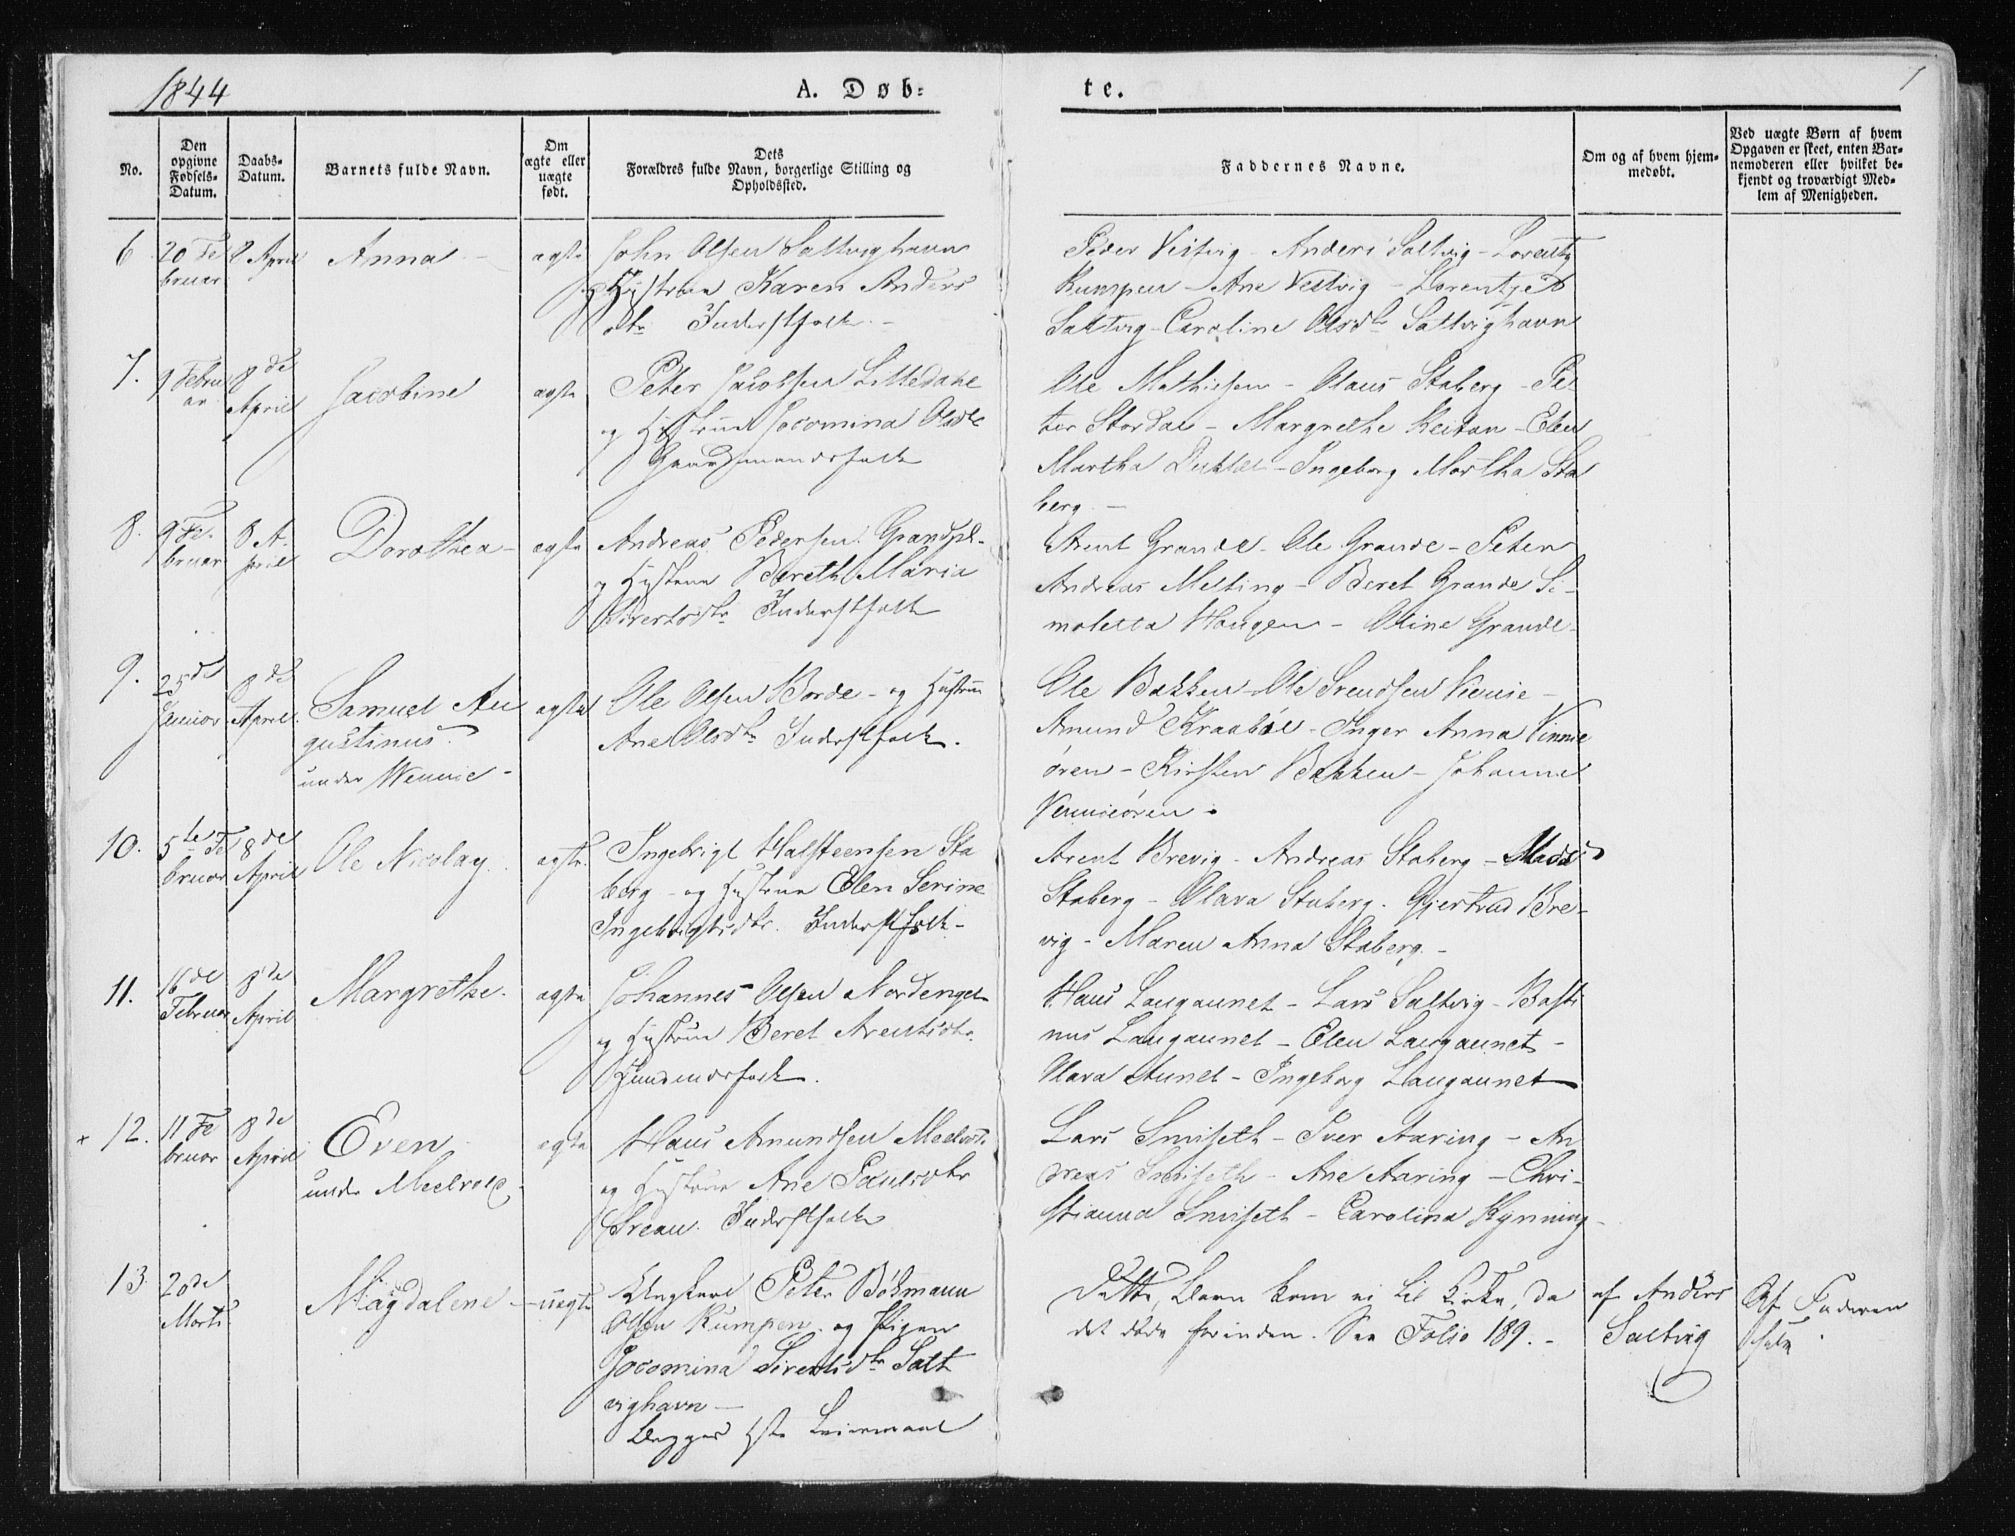 1844
A. Døb=
te.
1
No.
Den opgivne Fødsels-Datum.
Daabs-Datum.
Barnets fulde Navn.
Om ægte eller uægte født.
Dets
Forældres fulde Navn, borgerlige Stilling og
Opholdssted.
Faddernes Navne.
Om og af hvem hjem-
medøbt.
Ved uægte Børn af hvem
Opgaven er skeet, enten Bar-
nemoderen eller hvilket be-
kjendt og troværdigt Med-
lem af Menigheden.
6 20 Fe
bruar
8 April
Anna
ægte
John Olsen Saltvighavn
og Hustrue Karen Anders
dtr Inderstfolk
Peder Vestvig - Anders Saltvig - Lorents
Rumpen - Ane Vestvig - Lorentze
Saltvig - Caroline Olsdtr Saltvighavn
7.
Febru
ar
8de
April
Jacobine
ægte
Peter Jacobsen Litledahl
og Hustrue Jocomina Olsdtr
Gaardmandsfolk
Ole Mathisen - Olaus Staberg - Pe
ter Stordal - Margrethe Reitan - Elen
Martha - Ingeborg Martha Sta
berg. -
8. 9 Fe-
bruar
8 A-
pril
Dorothea
ægte
Andreas Pedersen Grandpl.
og Hustrue Bereth Maria
Sivertsdtr Inderstfolk
Arent Grande - Ole Grande - Peter
Andreas Melting - Beret Grande Si-
moletta Haugen - Oline Grande
9. 25de
Januar
8de
April
Samuel Au
gustinus.
under Wennie -
ægte
Ole Olsen Borde - og Hustrue
Ane Olsdtr Inderstfolk.
Ole Bakken - Ole Svendsen Vinnie -
Amund Kraabøl - Inger Anna Vinnie
øren - Kirsten Bakken - Johanna
Vennieøren.
10. 5te Fe
bruar
8de
April
Ole Nicolay.
ægte
Ingebrigt Halsteensen Sta
berg - og Hustrue Elen Serine
Ingebrigtsdtr. Inderstfolk -
Arent Brevig - Andreas Staberg - Mads
Staberg - Olava Staberg. Gjertrud Bre-
vig - Maren Anna Staberg. -
11. 16de
Februar
8de
April
Margrethe.
ægte
Johannes Olsen Nordenget
og Hustrue Beret Arentsdtr.
Huusmandsfolk.
Hans Laugaunet - Lars Saltvig - Basti
nus Laugaunet - Elen Laugaunet -
Olava Aunet - Ingeborg Laugaunet
+ 12. 11 Fe
bruar
8de
April
Even
under Meelvold
ægte
Hans Amundsen Meelvold
og Hustrue Ane Paulsdtr
Inderstfolk
Lars Smiseth - Iver Aaring - An
dreas Smiseth - Ane Aaring - Chri-
stianna Smiseth - Carolina Kynning -
13 20de
Marts
Magdalene
uægte
Ungkarl Peter Bøkmann
Olsen Rumpen og Pigen
Jocomina Sivertsdtr Salt
vighavn -
Begges 1ste Leiermaal
Dette Barn kom ei til Kirke, da
det døde forinden. See Folio 189. -
af Anders
Saltvig
Af Faderen
selv.